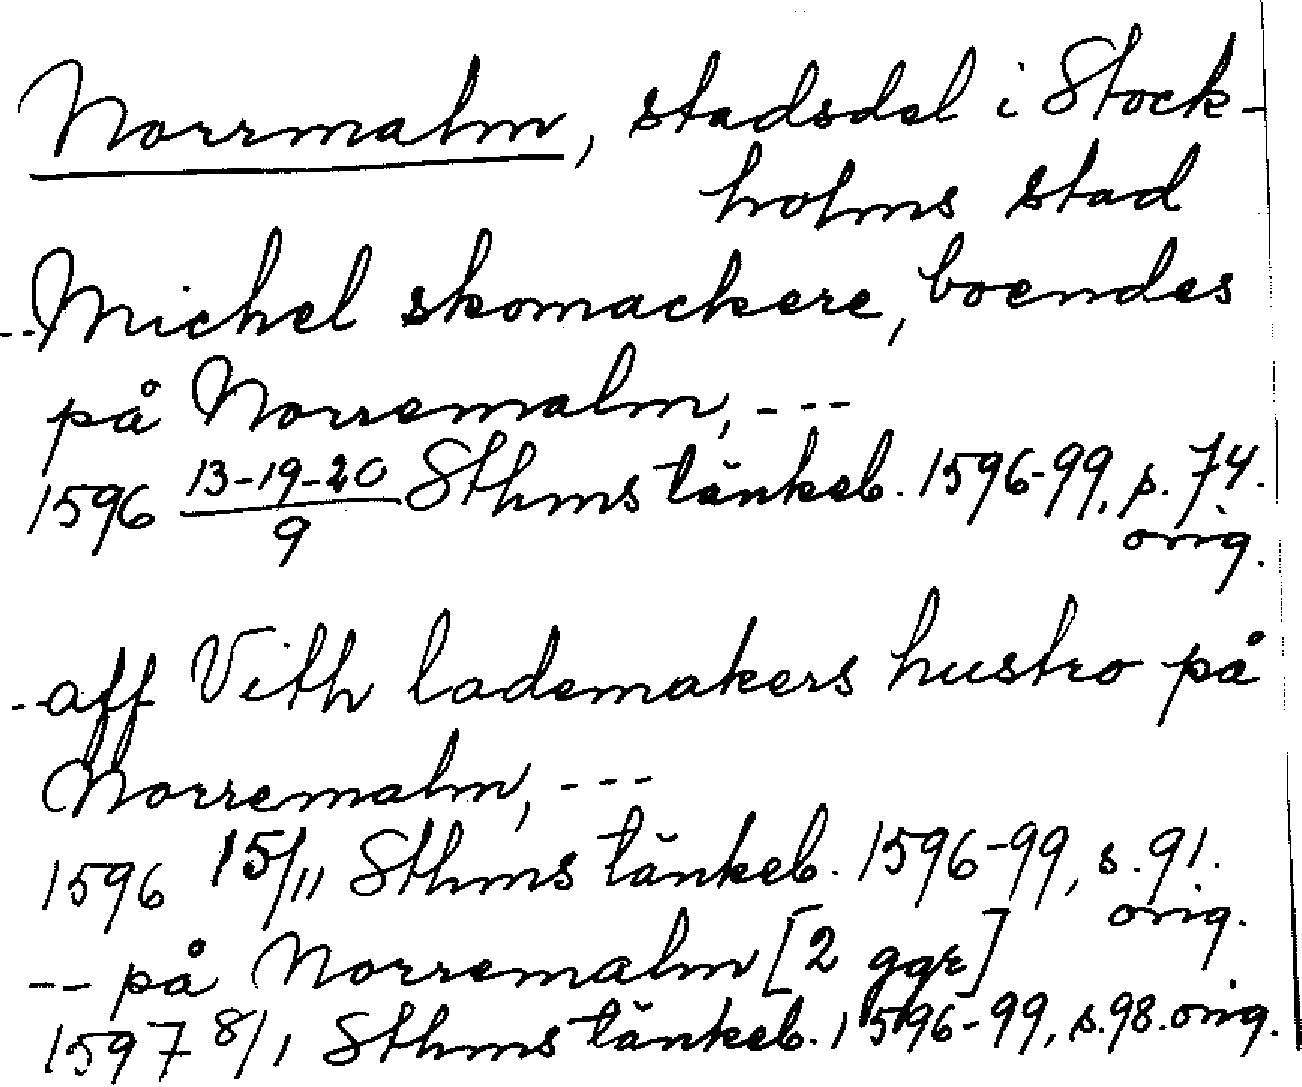 Norrmalm, stadsdel i Stock-
holms stad
--Michel skomackere, boendes
på Norremalm, ---
1596 13-19-20/9 Sthms tänkeb. 1596-99, s. 74.
orig.
--aff Vith lademakers hustro på
Norremalm, ---
1596 15/11 Sthms tänkeb. 1596-99, s. 91.
orig.
-- på Norremalm [2 ggr]
1597 8/1 Sthms tänkeb. 1596-99, s. 98. orig.